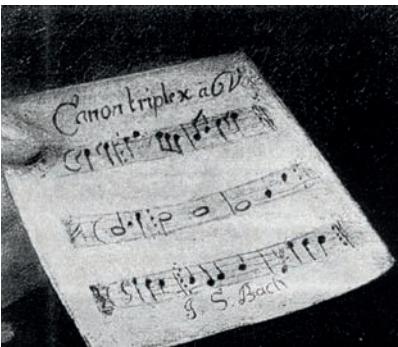 Canon triplex à 6 V
J. S. Bach